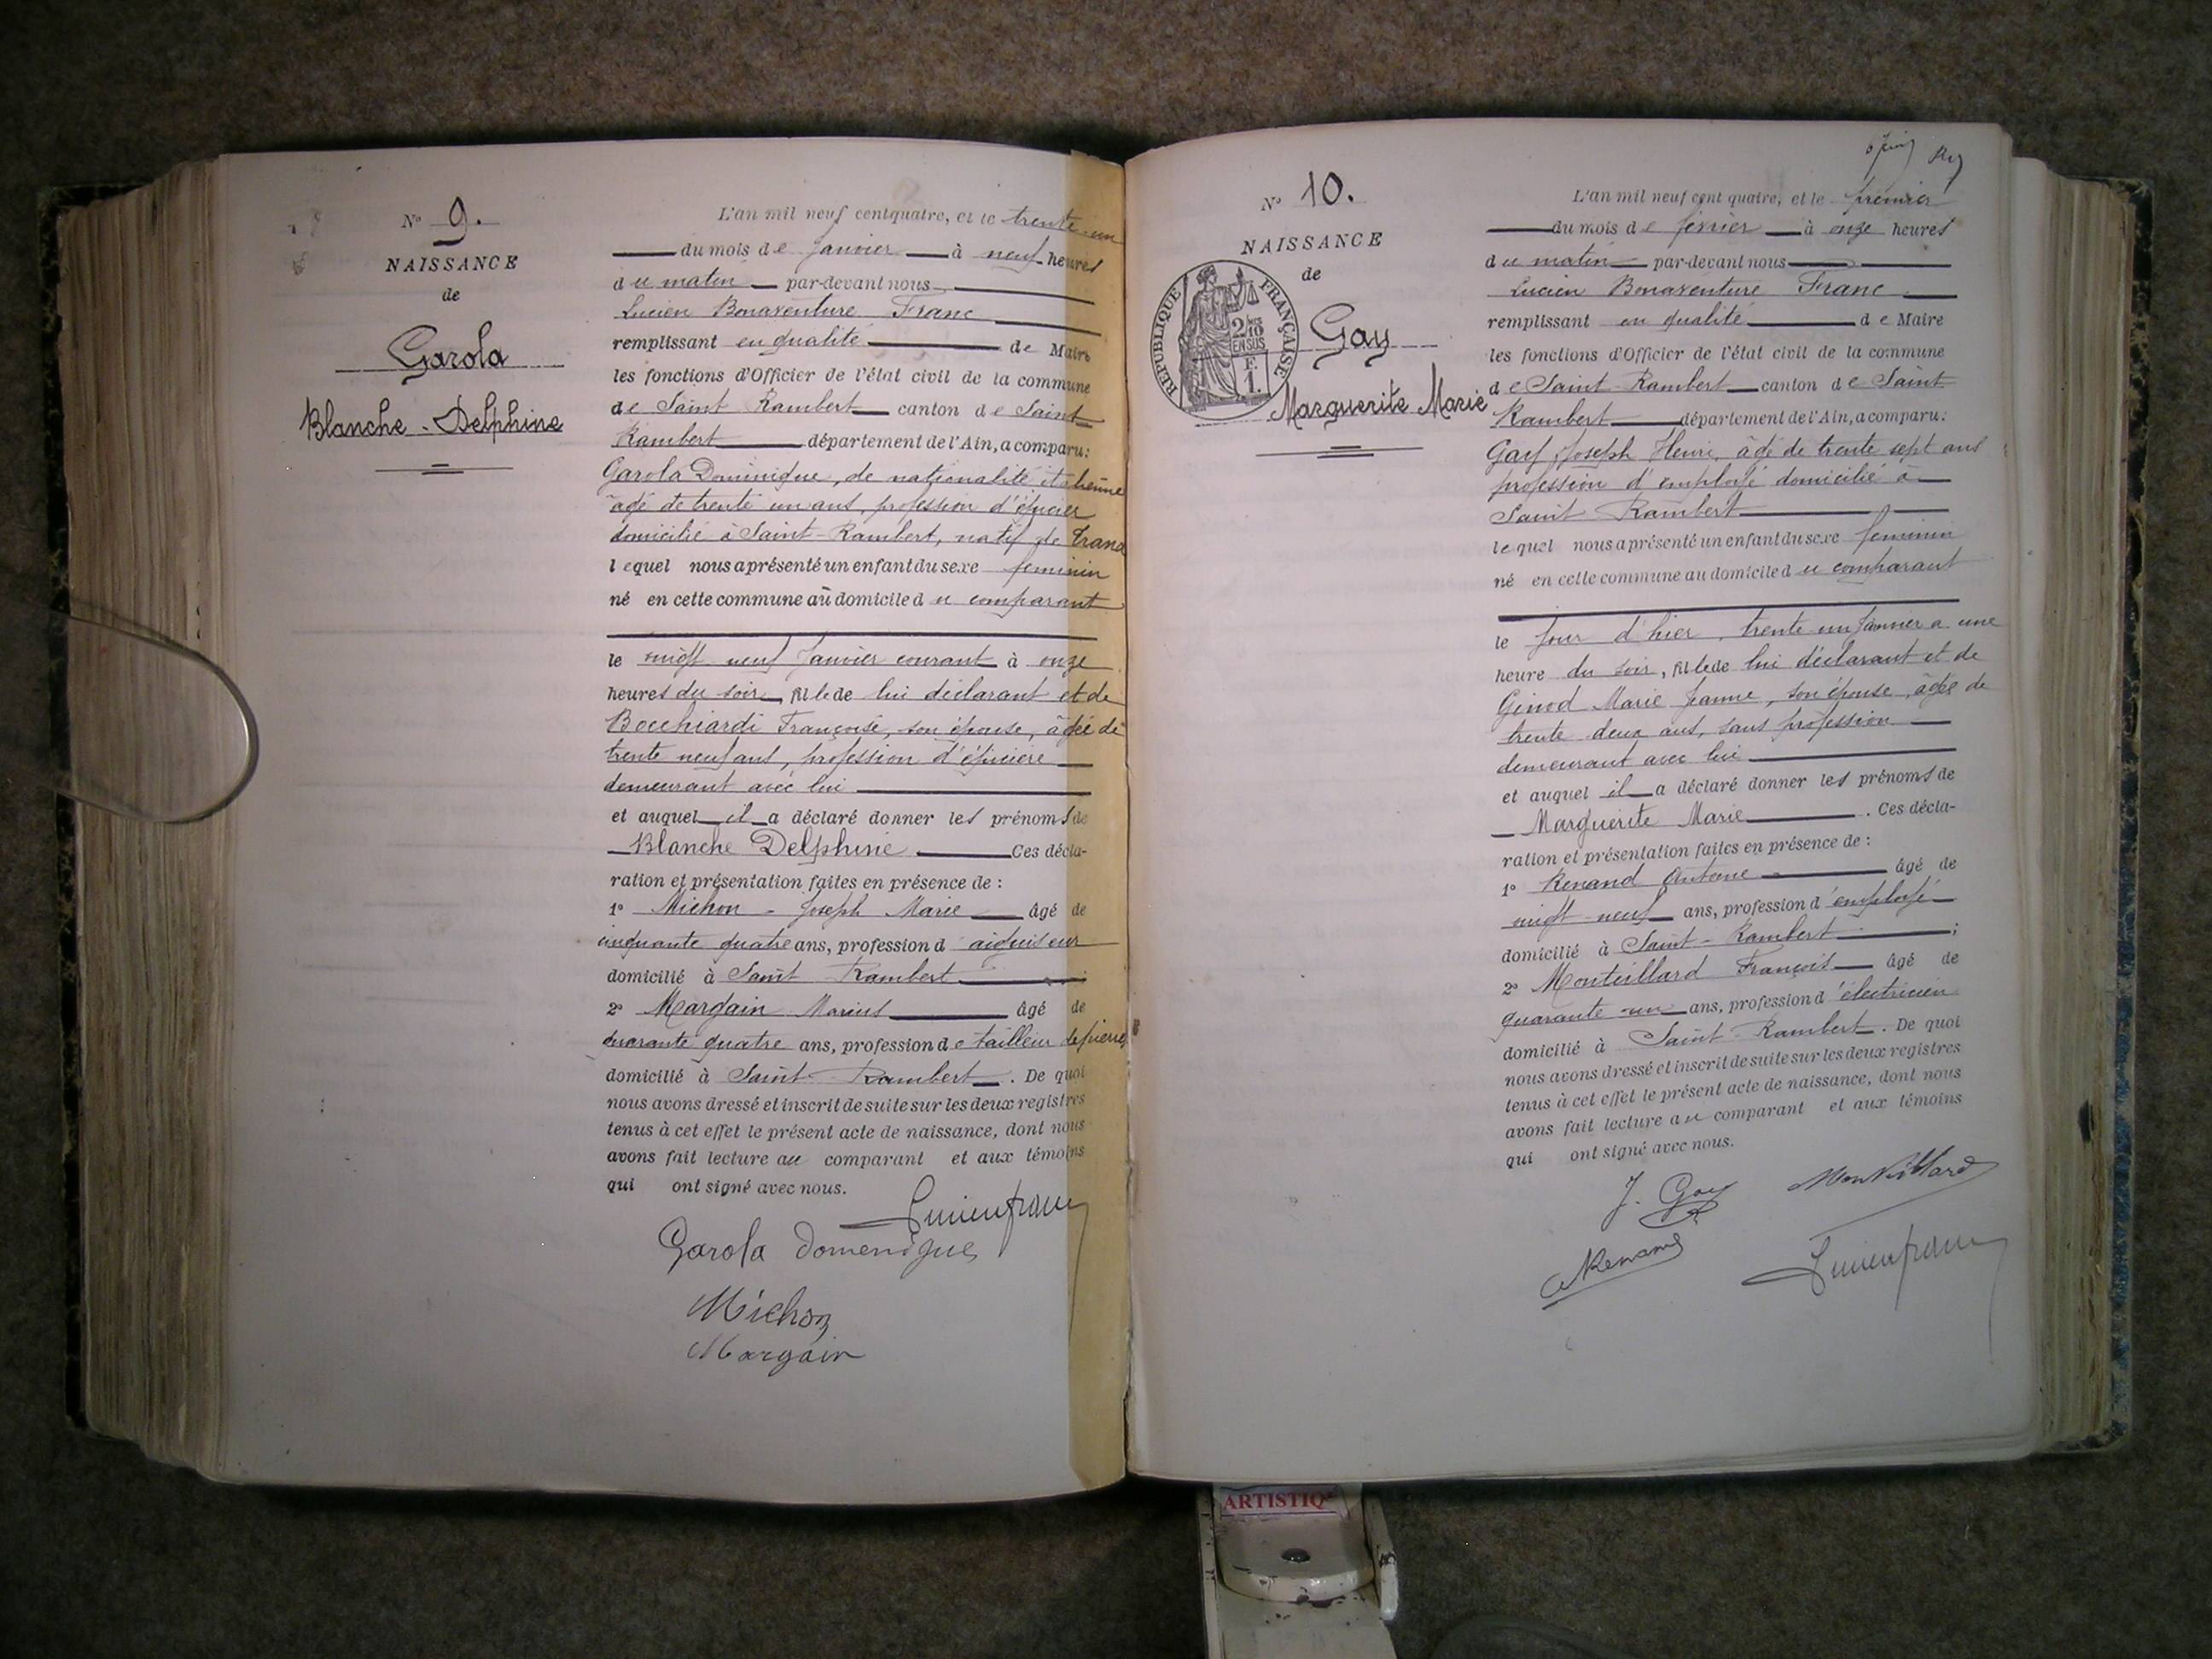 N° 9.
NAISSANCE
de
Garola
Blanche - Delphine
L'an mil neuf cent quatre, et le trente-un
du mois de Janvier à neuf heures
du matin par-devant nous
Lucien Bonaventure Franc
remplissant en qualité de Maire
les fonctions d'Officier de l'état civil de la commune
de Saint Rambert canton de Saint
Rambert département de l'Ain, a comparu:
Garola Dominique, de nationalité italienne
âgé de trente un ans, profession d'épicier
domicilié à Saint-Rambert, natif de Trana
lequel nous a présenté un enfant du sexe feminin
né en cette commune au domicile du comparant
le vingt neuf Janvier courant à onze
heures du soir, fille de lui déclarant et de
Bocchiardi Françoise, son épouse, âgée de
trente neuf ans, profession d'épicière
demeurant avec lui
et auquel il a déclaré donner les prénoms de
Blanche Delphine Ces décla-
ration et présentation faites en présence de :
1° Michon - Joseph Marie âgé de
cinquante quatre ans, profession d aiguiseur
domicilié à Saint Rambert ;
2° Margain Marius âgé de
quarante quatre ans, profession de tailleur de pierres
domicilié à Saint-Rambert. De quoi
nous avons dressé et inscrit de suite sur les deux registres
tenus à cet effet le présent acte de naissance, dont nous
avons fait lecture au comparant et aux témoins
qui ont signé avec nous.
Lucien franc
Garola Domenique
Michon
Margain
6 Juin
N° 10.
NAISSANCE
de
RÉPUBLIQUE FRANÇAISE
2/10 EN SUS
F. 1.
Gay
Marguerite Marie
L'an mil neuf cent quatre, et le premier
du mois de février à onze heures
du matin par-devant nous
Lucien Bonaventure Franc
remplissant en qualité de Maire
les fonctions d'Officier de l'état civil de la commune
de Saint-Rambert canton de Saint
Rambert département de l'Ain, a comparu:
Gay Joseph Henri, âgé de trente sept ans
profession d'employé domicilié à
Saint Rambert
lequel nous a présenté un enfant du sexe feminin
né en cette commune au domicile du comparant
le jour d'hier, trente-un Janvier a une
heure du soir, fille de lui déclarant et de
Ginod Marie Jeanne, son épouse, âgée de
trente-deux ans, sans profession
demeurant avec lui
et auquel il a déclaré donner les prénoms de
Marguerite Marie. Ces décla-
ration et présentation faites en présence de :
1° Renand Antoine âgé de
vingt-neuf ans, profession d'employé
domicilié à Saint-Rambert ;
2° Monteillard François âgé de
quarante-un ans, profession d'électricien
domicilié à Saint-Rambert. De quoi
nous avons dressé et inscrit de suite sur les deux registres
tenus à cet effet le présent acte de naissance, dont nous
avons fait lecture au comparant et aux témoins
qui ont signé avec nous.
J. Gay Monteillard
A Renand Lucien franc
ARTISTIQ